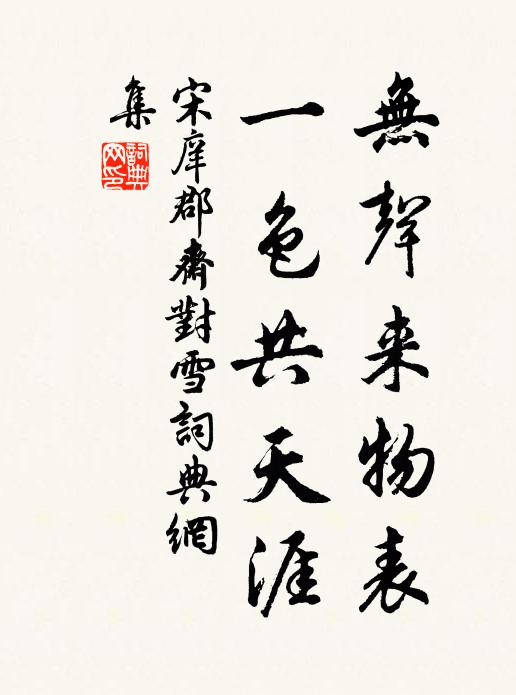 無聲来物表
一色共天涯
宋庠郡齋對雪詞典網
集
詞典网印